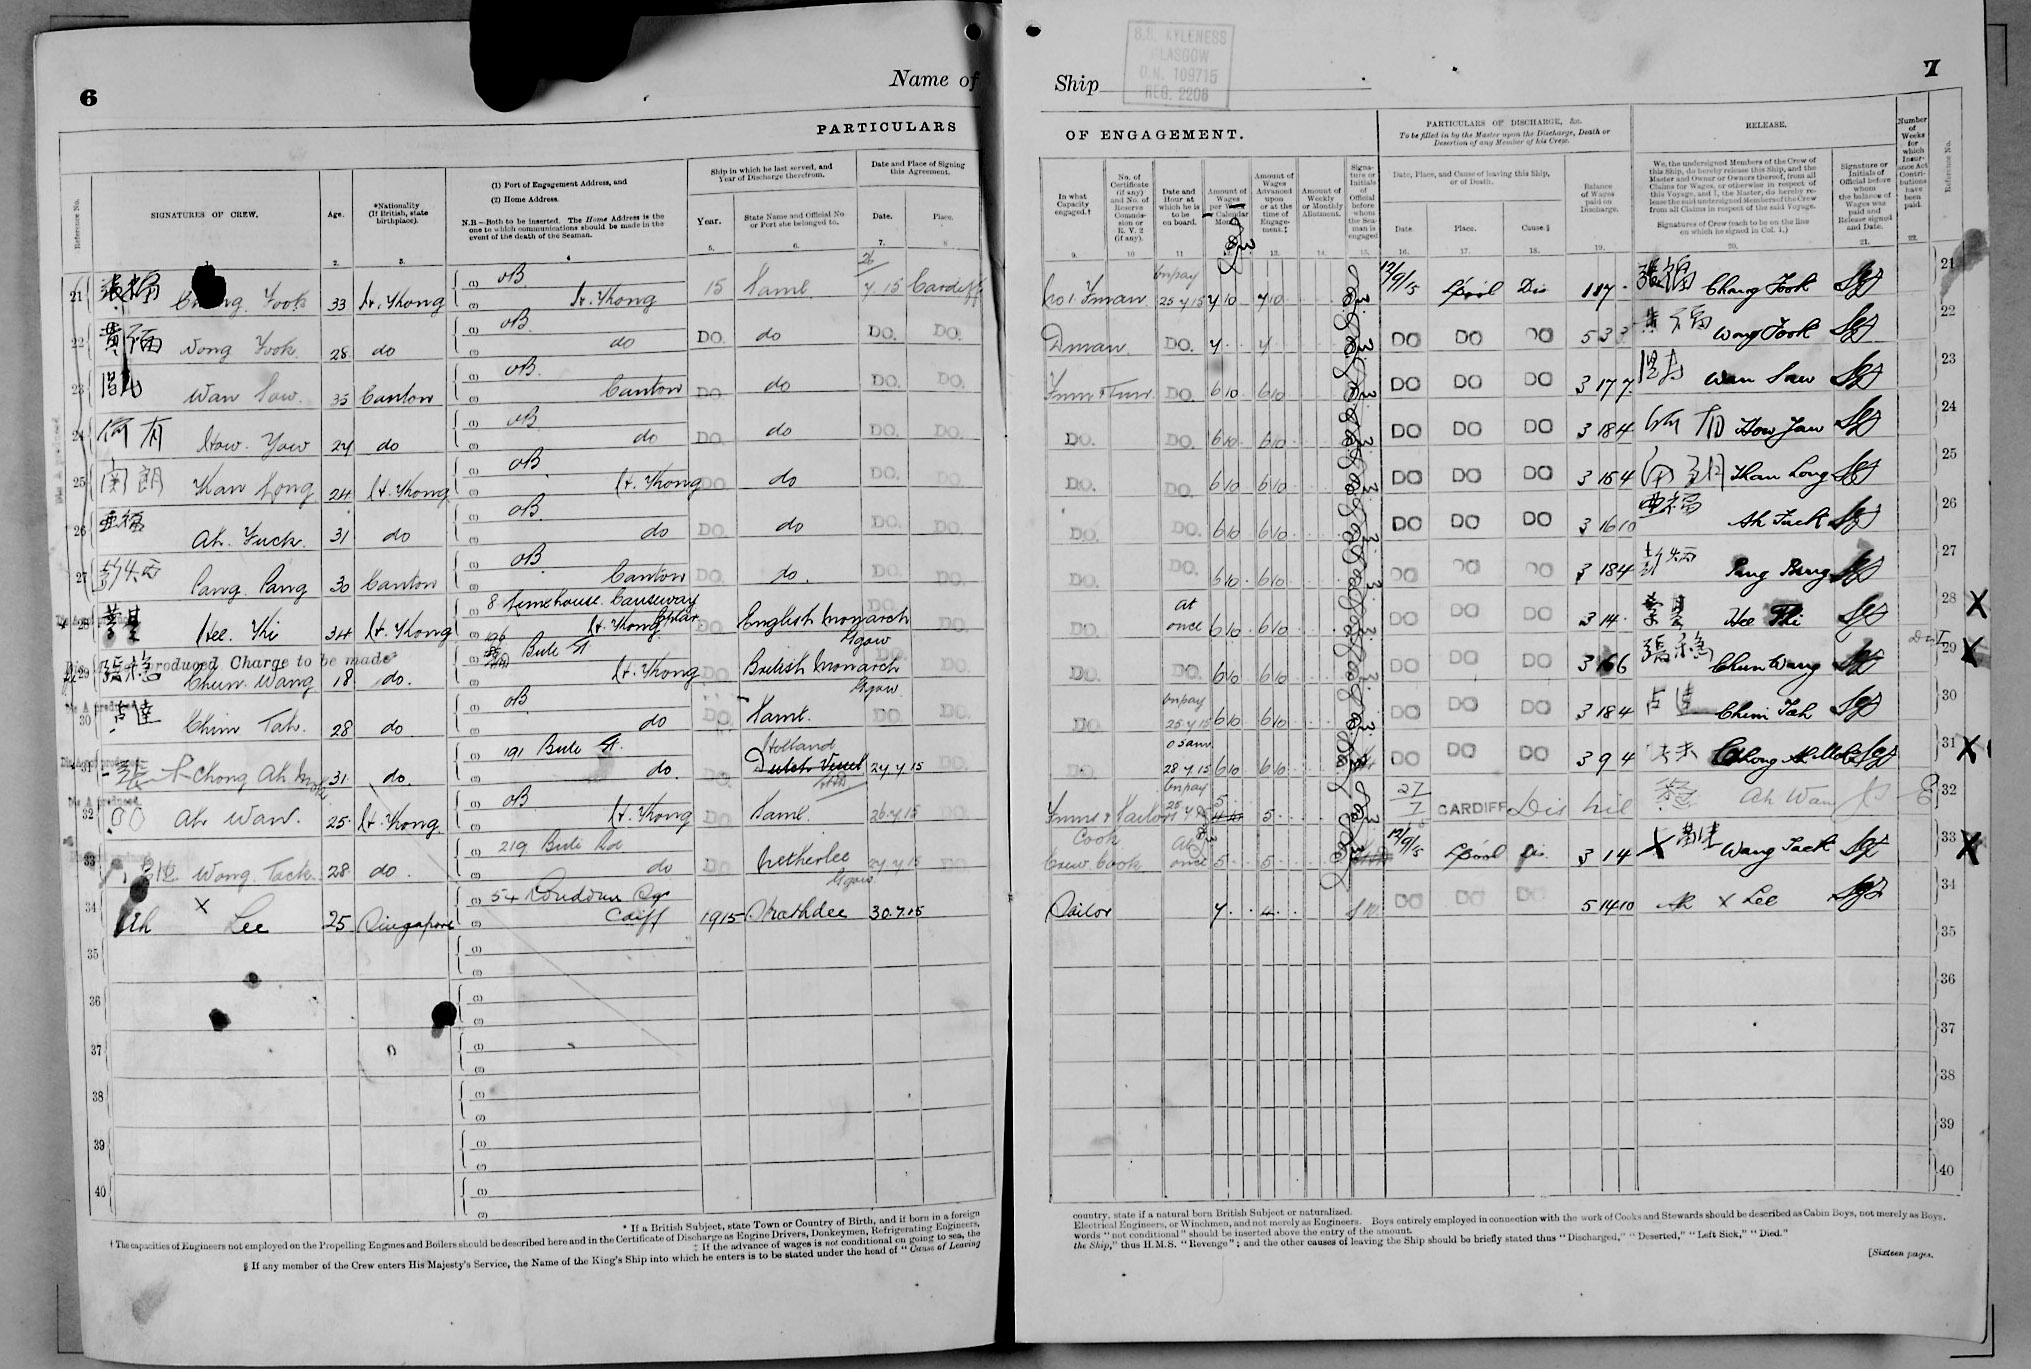 6
Name of
PARTICULARS
Reference No.
SIGNATURES OF CREW.
Age.
*Nationality (If British, state birthplace).
(1) Port of Engagement Address, and
(2) Home Address.
N.B.—Both to be inserted. The Home Address is the one to which communications should be made in the event of the death of the Seaman.
Ship in which he last served, and Year of Discharge therefrom.
Year.
State Name and Official No or Port she belonged to.
Date and Place of Signing this Agreement.
Date.
Place.
21 張福 Chung Fook 33 H. Kong oB H. Kong 15 Same 26/7.15 Cardiff
22 黄福 Wong Fook 28 do oB do DO. do DO. DO.
23 Wan Saw 35 Canton oB Canton DO do DO. DO.
24 何有 How Yow 24 do oB do DO. do DO. DO.
25 南朗 Kan Long 24 H. Kong oB H. Kong DO do DO. DO.
26 亜福 Ah Fuck 31 do oB do DO. do DO. DO.
27 Pang Pang 30 Canton oB Canton DO. do. DO. DO.
28 Hee Thi 34 H. Kong 8 Limehouse Causeway Poplar H. Kong DO. English Monarch Glgow DO. DO.
produced Charge to be made
29 Chun Wang 18 do. Bute St H. Kong DO British Monarch Glgow DO. DO.
30 占達 Chim Tah 28 do oB do DO. Same. DO DO.
31 Chong Ah Mok 31 do. 191 Bute St. do. DO Holland Dutch Vessel 27 7 15 DO.
32 Ah Wan. 25 H. Kong oB H. Kong DO Same. 26.7.15 DO.
33 Wong Tack 28 do. 219 Bute Rd do DO Netherlee Glgow 27 7 15 DO.
34 Ah X Lee 25 Singapore 54 Loudoun Sq Cdiff 1915 Strathdee 30.7.15
35
36
37
38
39
40
* If a British Subject, state Town or Country of Birth, and if born in a foreign
† The capacities of Engineers not employed on the Propelling Engines and Boilers should be described here and in the Certificate of Discharge as Engine Drivers, Donkeymen, Refrigerating Engineers,
‡ If the advance of wages is not conditional on going to sea, the
§ If any member of the Crew enters His Majesty's Service, the Name of the King's Ship into which he enters is to be stated under the head of "Cause of Leaving
Ship
S.S. KYLENESS
GLASGOW
O.N. 109715
REG. 2206
7
OF ENGAGEMENT.
PARTICULARS OF DISCHARGE, &c.
To be filled in by the Master upon the Discharge, Death or Desertion of any Member of his Crew.
RELEASE.
Number of Weeks for which Insurance Act Contributions have been paid.
Reference No.
In what Capacity engaged.†
No. of Certificate (if any) and No. of Reserve Commission or R. V. 2 (if any).
Date and Hour at which he is to be on board.
Amount of Wages per Calendar Month.
Amount of Wages Advanced upon or at the time of Engagement.‡
Amount of Weekly or Monthly Allotment.
Signature or Initials of Official before whom the Seaman is engaged
Date, Place, and Cause of leaving this Ship, or of Death.
Date.
Place.
Cause.§
Balance of Wages paid on Discharge.
We, the undersigned Members of the Crew of this Ship, do hereby release this Ship, and the Master and Owner or Owners thereof, from all Claims for Wages, or otherwise in respect of this Voyage, and I, the Master, do hereby release the said undersigned Members of the Crew from all Claims in respect of the said Voyage.
Signatures of Crew (each to be on the line on which he signed in Col. 1.)
Signature or Initials of Official before whom the balance of Wages was paid and Release signed and Date.
No 1 Fman onpay 25 7 15 7 10 7 10 12/9/15 Lpool Dis 張福 Chang Fook 21
Dman DO. 7 7 DO DO DO 黄福 Wong Fook 22
Fmn & Tmr DO. 6 10 6 10 DO DO DO 3 17 7 Wan Saw 23
DO. DO. 6 10 6 10 DO DO DO 3 18 4 何有 How Yaw 24
DO. DO. 6 10 6 10 DO DO DO 3 16 4 Khan Long 25
DO. DO. 6 10 6 10 DO DO DO 3 16 10 亜福 Ah Fuck 26
DO. DO. 6 10 6 10 DO DO DO 3 18 4 Pang Pang 27
DO. at once 6 10 6 10 DO DO DO 3 14 Hee Thi 28 X
DO. DO. 6 10 6 10 DO DO DO 3 6 6 Chun Wang 29 X
DO onpay 25 7 15 6 10 6 10 DO DO DO 3 18 4 占達 Chim Tah 30
DO. 28 7 15 6 10 6 10 DO DO DO 3 9 4 Chong Ah Mok 31 X
Fmns & Sailors Cook onpay 5 5 27/7 CARDIFF Dis nil Ah Wan 32
Crew Cook at once 5 5 12/9/15 Lpool Dis 3 14 X Wang Tack 33 X
Sailor 7 4 DO DO DO 5 14 10 Ah X Lee 34
35
36
37
38
39
40
country, state if a natural born British Subject or naturalized.
Electrical Engineers, or Winchmen, and not merely as Engineers. Boys entirely employed in connection with the work of Cooks and Stewards should be described as Cabin Boys, not merely as Boys.
words "not conditional" should be inserted above the entry of the amount.
the Ship," thus H.M.S. "Revenge"; and the other causes of leaving the Ship should be briefly stated thus "Discharged," "Deserted," "Left Sick," "Died."
[Sixteen pages.